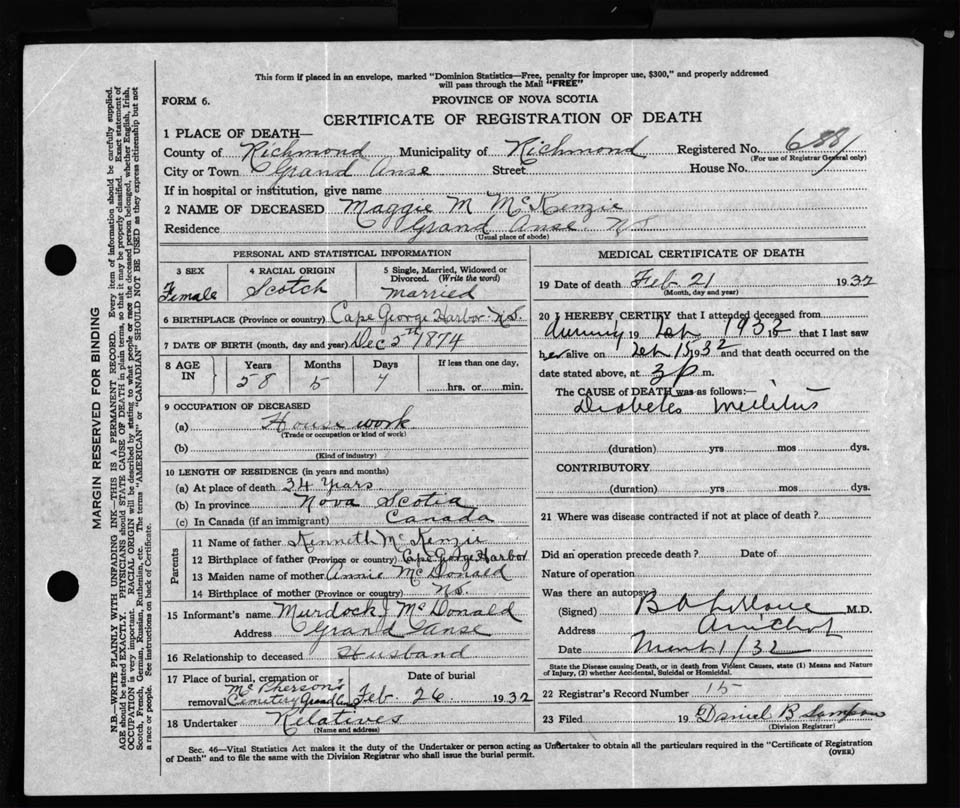 This form if placed in an envelope, marked "Dominion Statistics—Free, penalty for improper use, $300," and properly addressed
will pass through the Mail "FREE"
FORM 6.
PROVINCE OF NOVA SCOTIA
CERTIFICATE OF REGISTRATION OF DEATH
1 PLACE OF DEATH—
County of Richmond Municipality of Richmond Registered No.
(For use of Registrar General only)
City or Town Grand Anse Street House No.
If in hospital or institution, give name
2 NAME OF DECEASED Maggie M McKenzie
Residence Grand Anse. N.S
(Usual place of abode)
PERSONAL AND STATISTICAL INFORMATION
3 SEX 4 RACIAL ORIGIN 5 Single, Married, Widowed or
Divorced. (Write the word)
Female Scotch Married
6 BIRTHPLACE (Province or country) Cape George Harbor. N.S.
7 DATE OF BIRTH (month, day and year) Dec 5th 1874
8 AGE IN Years Months Days If less than one day,
58 5 7 hrs. or min.
9 OCCUPATION OF DECEASED
(a) House work
(Trade or occupation or kind of work)
(b)
(Kind of industry)
10 LENGTH OF RESIDENCE (in years and months)
(a) At place of death 34 Years
(b) In province Nova Scotia
(c) In Canada (if an immigrant) Canada
Parents
11 Name of father Kenneth McKenzie
12 Birthplace of father (Province or country) Cape George Harbor
13 Maiden name of mother Annie McDonald
14 Birthplace of mother (Province or country) N.S.
15 Informant's name Murdock J McDonald
Address Grand Anse
16 Relationship to deceased Husband
17 Place of burial, cremation or Date of burial
removal McPherson's Cemetery Grand Anse Feb. 26 1932
18 Undertaker Relatives
(Name and address)
MEDICAL CERTIFICATE OF DEATH
19 Date of death Feb 21 1932
(Month, day and year)
20 I HEREBY CERTIFY that I attended deceased from
19 Feb 1932 that I last saw
her alive on Feb 15 1932 and that death occurred on the
date stated above, at 3 p m.
The CAUSE OF DEATH was as follows:—
Diabetes Mellitus
(duration) yrs mos dys.
CONTRIBUTORY
(duration) yrs mos dys.
21 Where was disease contracted if not at place of death?
Did an operation precede death? Date of
Nature of operation
Was there an autopsy
(Signed) M.D.
Address Arichat
Date 1/32
State the Disease causing Death, or in death from Violent Causes, state (1) Means and Nature
of Injury, (2) whether Accidental, Suicidal or Homicidal.
22 Registrar's Record Number 15
23 Filed 19 Daniel R Sampson
(Division Registrar)
Sec. 46—Vital Statistics Act makes it the duty of the Undertaker or person acting as Undertaker to obtain all the particulars required in the "Certificate of Registration
of Death" and to file the same with the Division Registrar who shall issue the burial permit. (OVER)
MARGIN RESERVED FOR BINDING
N.B.—WRITE PLAINLY WITH UNFADING INK—THIS IS A PERMANENT RECORD. Every item of information should be carefully supplied.
AGE should be stated EXACTLY. PHYSICIANS should STATE CAUSE OF DEATH in plain terms, so that it may be properly classified. Exact statement of
OCCUPATION is very important. RACIAL ORIGIN will be described by stating to what people or race the deceased person belonged, whether English, Irish,
Scotch, French, German, Russian, Ruthenian, etc. The terms "AMERICAN" or "CANADIAN" SHOULD NOT BE USED as they express citizenship but not
a race or people. See instructions on back of Certificate.